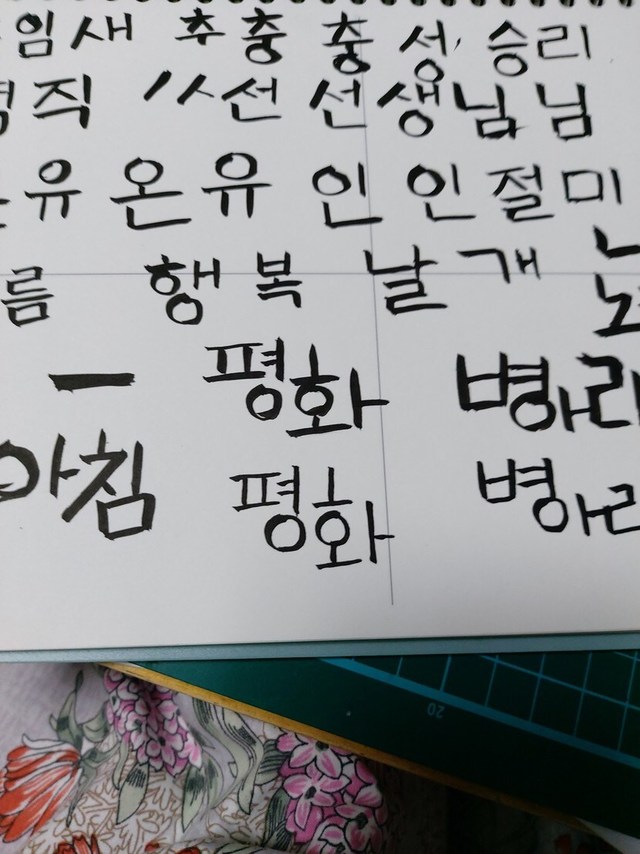 임새 추충 충성 승리
직 선 선생님님
유 온유 인 인절미
름 행복 날개
평화 병아리
아침 평화 병아리